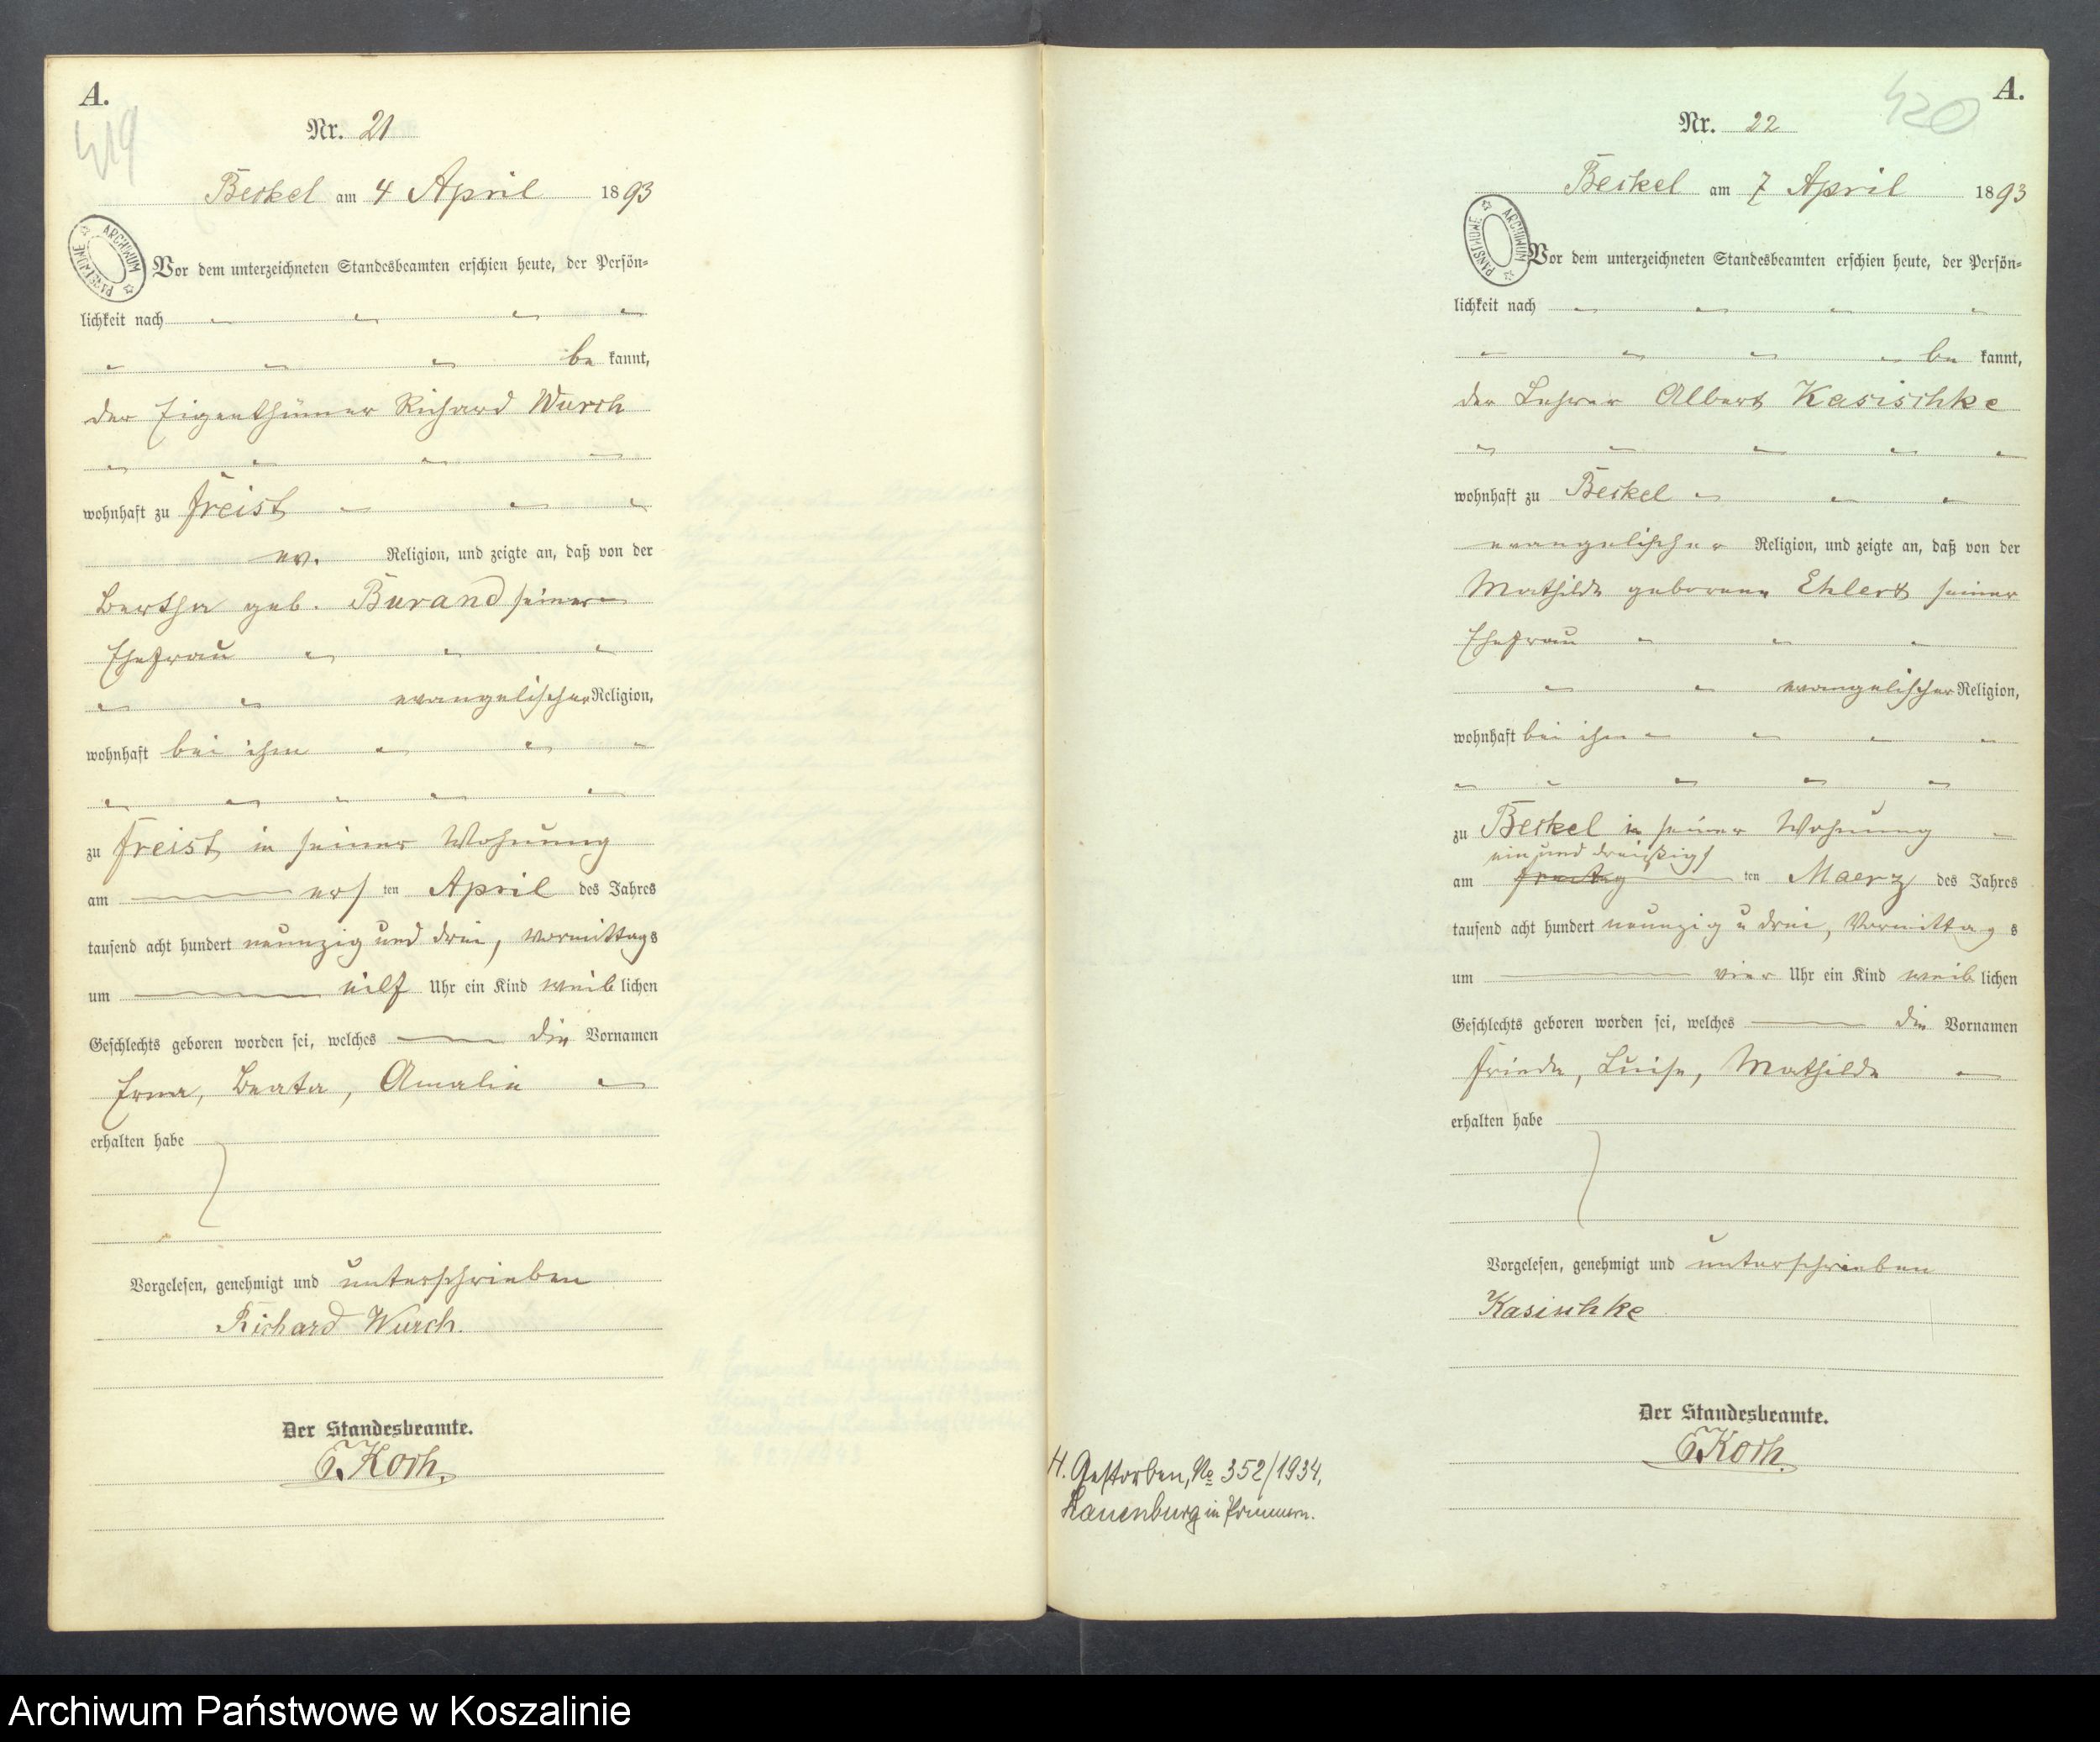 A.
419
Nr. 21
Beskel am 4 April 1893
ARCHIWUM PAŃSTWOWE
Vor dem unterzeichneten Standesbeamten erschien heute, der Persön=
lichkeit nach
be kannt,
der Eigenthümer Richard Wurch
wohnhaft zu Freist
ev. Religion, und zeigte an, daß von der
Bertha geb. Burand seiner
Ehefrau
evangelischer Religion,
wohnhaft bei ihm
zu Freist in seiner Wohnung
am ersten April des Jahres
tausend acht hundert neunzig und drei, Vormittags
um eilf Uhr ein Kind weiblichen
Geschlechts geboren worden sei, welches die Vornamen
Erna, Beata, Amalie
erhalten habe
Vorgelesen, genehmigt und unterschrieben
Richard Wurch.
Der Standesbeamte.
Koch.
A.
420
Nr. 22
Beskel am 7 April 1893
ARCHIWUM PAŃSTWOWE
Vor dem unterzeichneten Standesbeamten erschien heute, der Persön=
lichkeit nach
be kannt,
der Lehrer Albert Kasischke
wohnhaft zu Beskel
evangelischer Religion, und zeigte an, daß von der
Mathilde geborene Ehlert seiner
Ehefrau
evangelischer Religion,
wohnhaft bei ihm
zu Beskel in seiner Wohnung
ein und dreißigs
am ten Maerz des Jahres
tausend acht hundert neunzig u drei, Vormittags
um vier Uhr ein Kind weiblichen
Geschlechts geboren worden sei, welches die Vornamen
Frieda, Luise, Mathilde
erhalten habe
Vorgelesen, genehmigt und unterschrieben
Kasischke
Der Standesbeamte.
Koch.
H. Gestorben, No 352/1934,
Lauenburg in Pommern.
Archiwum Państwowe w Koszalinie